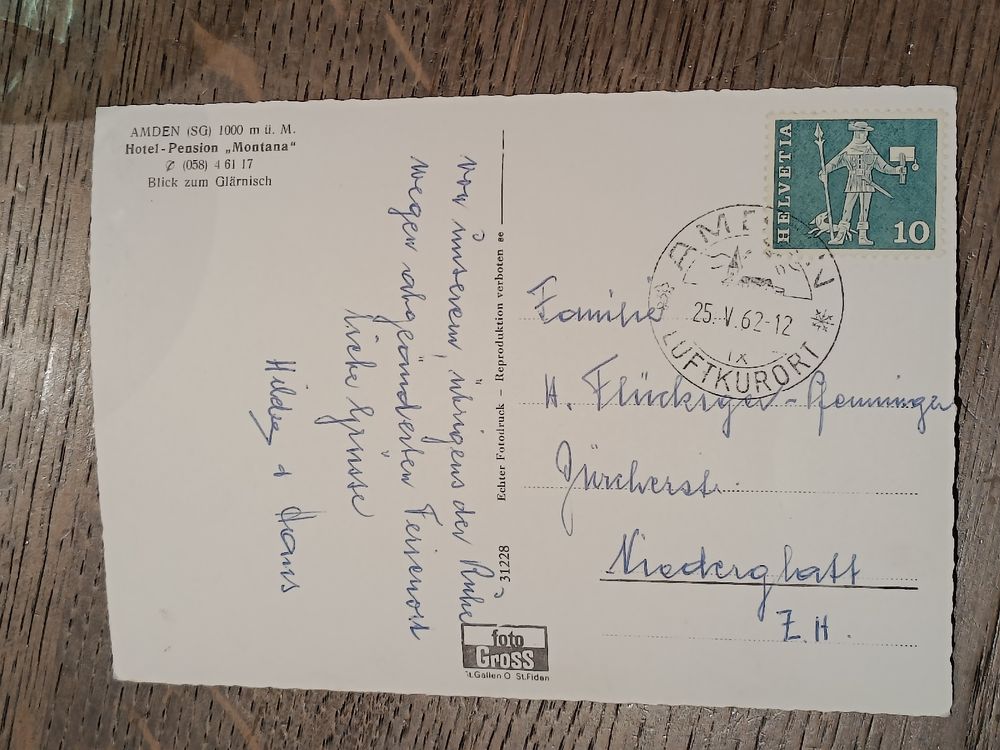 AMDEN (SG) 1000 m ü. M.
Hotel-Pension „Montana“
✆ (058) 4 61 17
Blick zum Glärnisch
von unserem, übrigens der Ruhe
wegen abgeänderten Ferienort
liebe Grüsse
Hildeg & Hans
Echter Fotodruck – Reproduktion verboten
31228
foto
Gross
St.Gallen O St.Fiden
HELVETIA
10
AMDEN
25.-V.62-12
IX
LUFTKURORT
Familie
H. Flückiger-Pfenninger
Zürcherstr.
Niederglatt
Z.H.